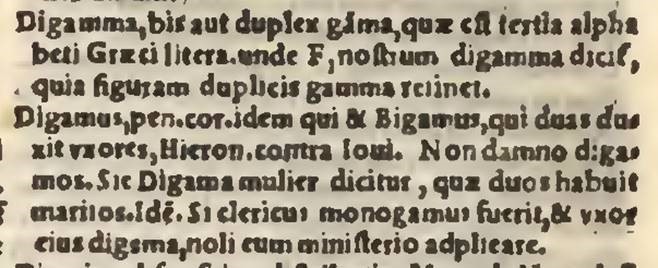 Digamma,bis aut duplex gāma,quæ eſt tertia alpha
beti Græci litera.unde F,noſtrum digamma diciť,
quia figuram duplicis gamma retinet.
Digamus,pen.cor.idem qui & Bigamus,qui duas du
xit vxores,Hieron.contra Ioui. Non damno diga-
mos.Sic Digama mulier dicitur, quæ duos habuit
maritos.Idē. Si clericus monogamus fuerit,& vxor
eius digama,noli eum miniſterio adplicare.